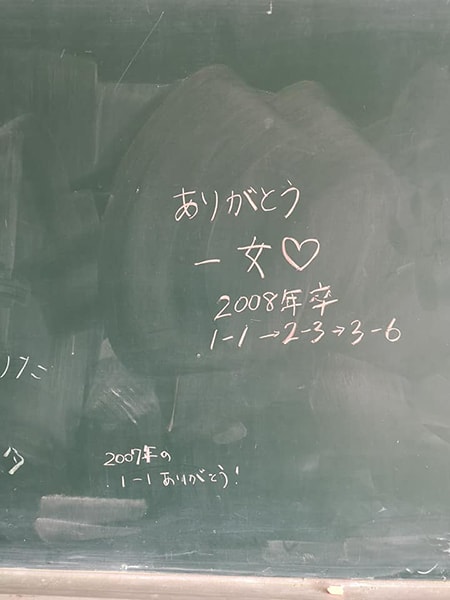 ありがとう
一女♡
2008年卒
1-1→2-3→3-6
2007年の
1-1ありがとう!